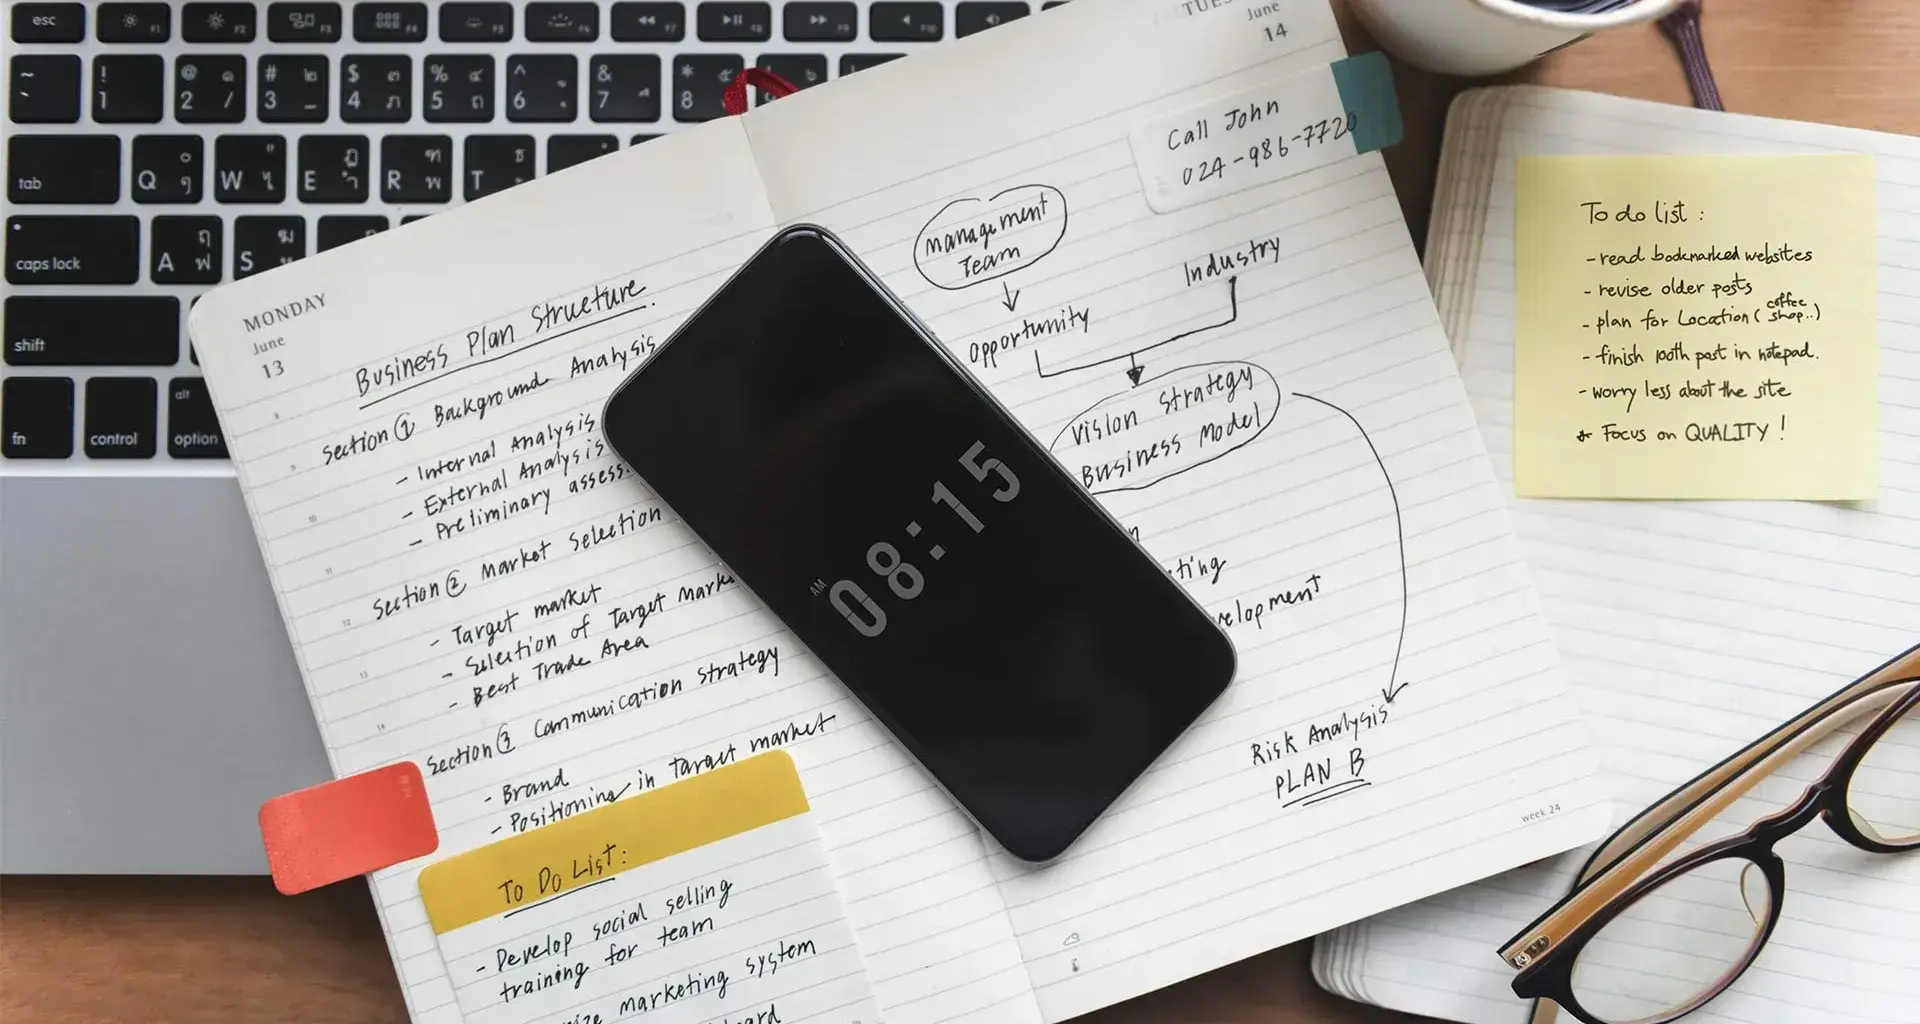 esc
F1
F2
F3
F4
F5
F6
F7
F8
F9
F10
~
!
1
@
2 /
#
3
$
4 ภ
%
5 ถ
^
6
&
7
*
8
tab
Q
W
E
R พ
T
caps lock
A ฟ
S
shift
fn
control
alt
option
MONDAY
June
13
Business Plan Structure.
Section ① Background Analysis
- Internal Analysis
- External Analysis
- Preliminary
Section ② Market Selection
- Target market
- Selection of Target
- Best Trade Area
Section ③ Communication Strategy
- Brand
- Positioning in Target market
To Do List:
- Develop social selling
training for team
marketing system
TUES
June
14
Call John
024-986-7720
management
Team
Industry
Opportunity
Vision Strategy
Business Model
Risk Analysis
PLAN B
week 24
AM
08:15
To do list :
- read bookmarked websites
- revise older posts
- plan for Location (coffee shop..)
- finish 100th post in notepad.
- worry less about the site
* Focus on QUALITY !